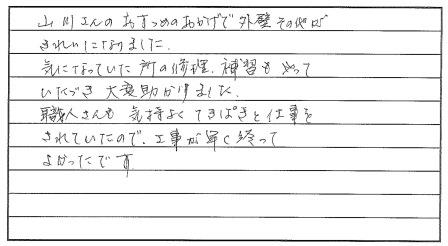 山川さんのおすすめのおかげで外壁その他が
きれいになりました。
気になっていた所の修理、補習もやって
いただき大変助かりました。
職人さんも気持よくてきぱきと仕事を
されていたので、工事が早く終って
よかったです